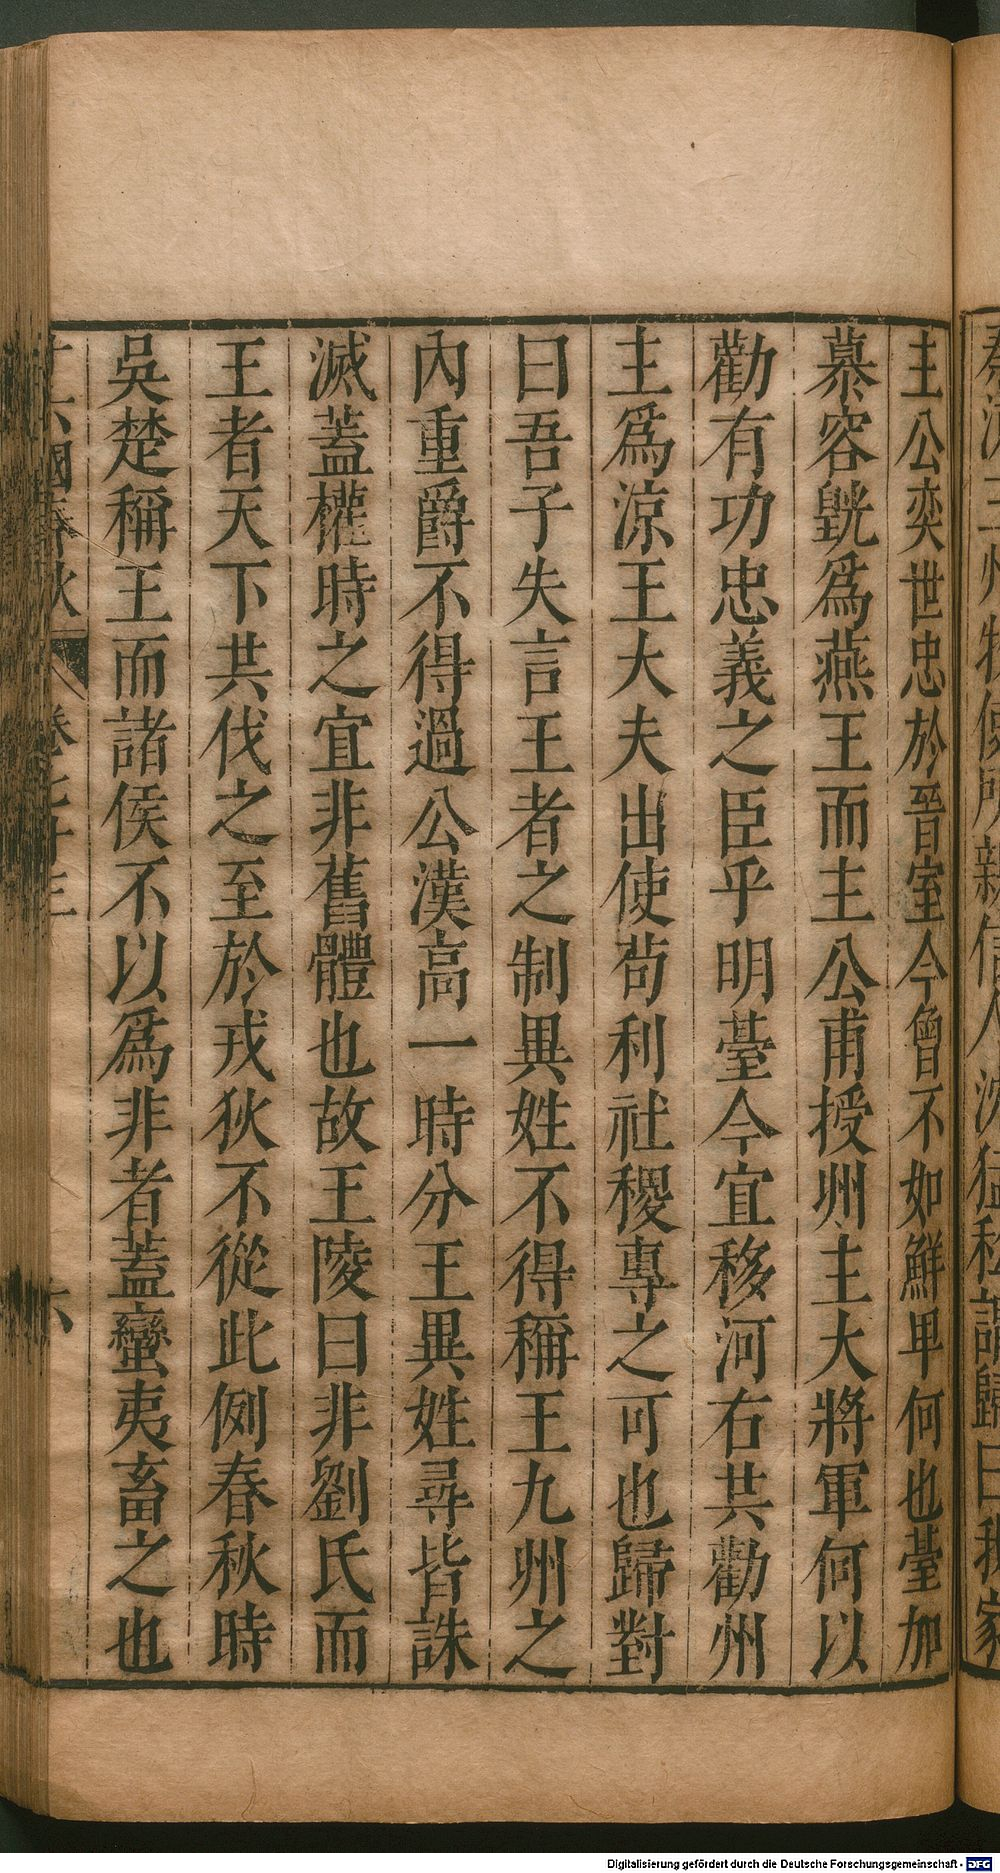 主公奕世忠於晉室今曾不如鮮卑何也臺加
慕容皝爲燕王而主公甫授州主大將軍何以
勸有功忠義之臣乎明臺今宜移河右共勸州
主爲涼王大夫出使苟利社稷專之可也歸對
曰吾子失言王者之制異姓不得稱王九州之
內重爵不得過公漢高一時分王異姓尋皆誅
滅蓋權時之宜非舊體也故王陵曰非劉氏而
王者天下共伐之至於戎狄不從此例春秋時
吳楚稱王而諸侯不以爲非者蓋蠻夷畜之也
十六國春秋
卷七十三
六
Digitalisierung gefördert durch die Deutsche Forschungsgemeinschaft - DFG